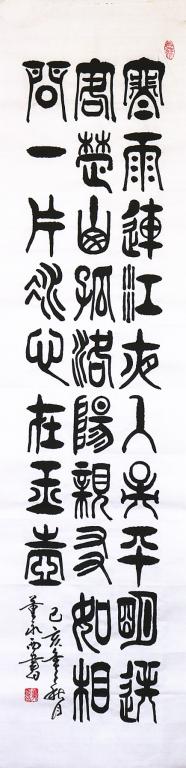 寒雨連江夜入吳平明送
客楚山孤洛陽親友如相
問一片冰心在玉壺
己亥年之秋月